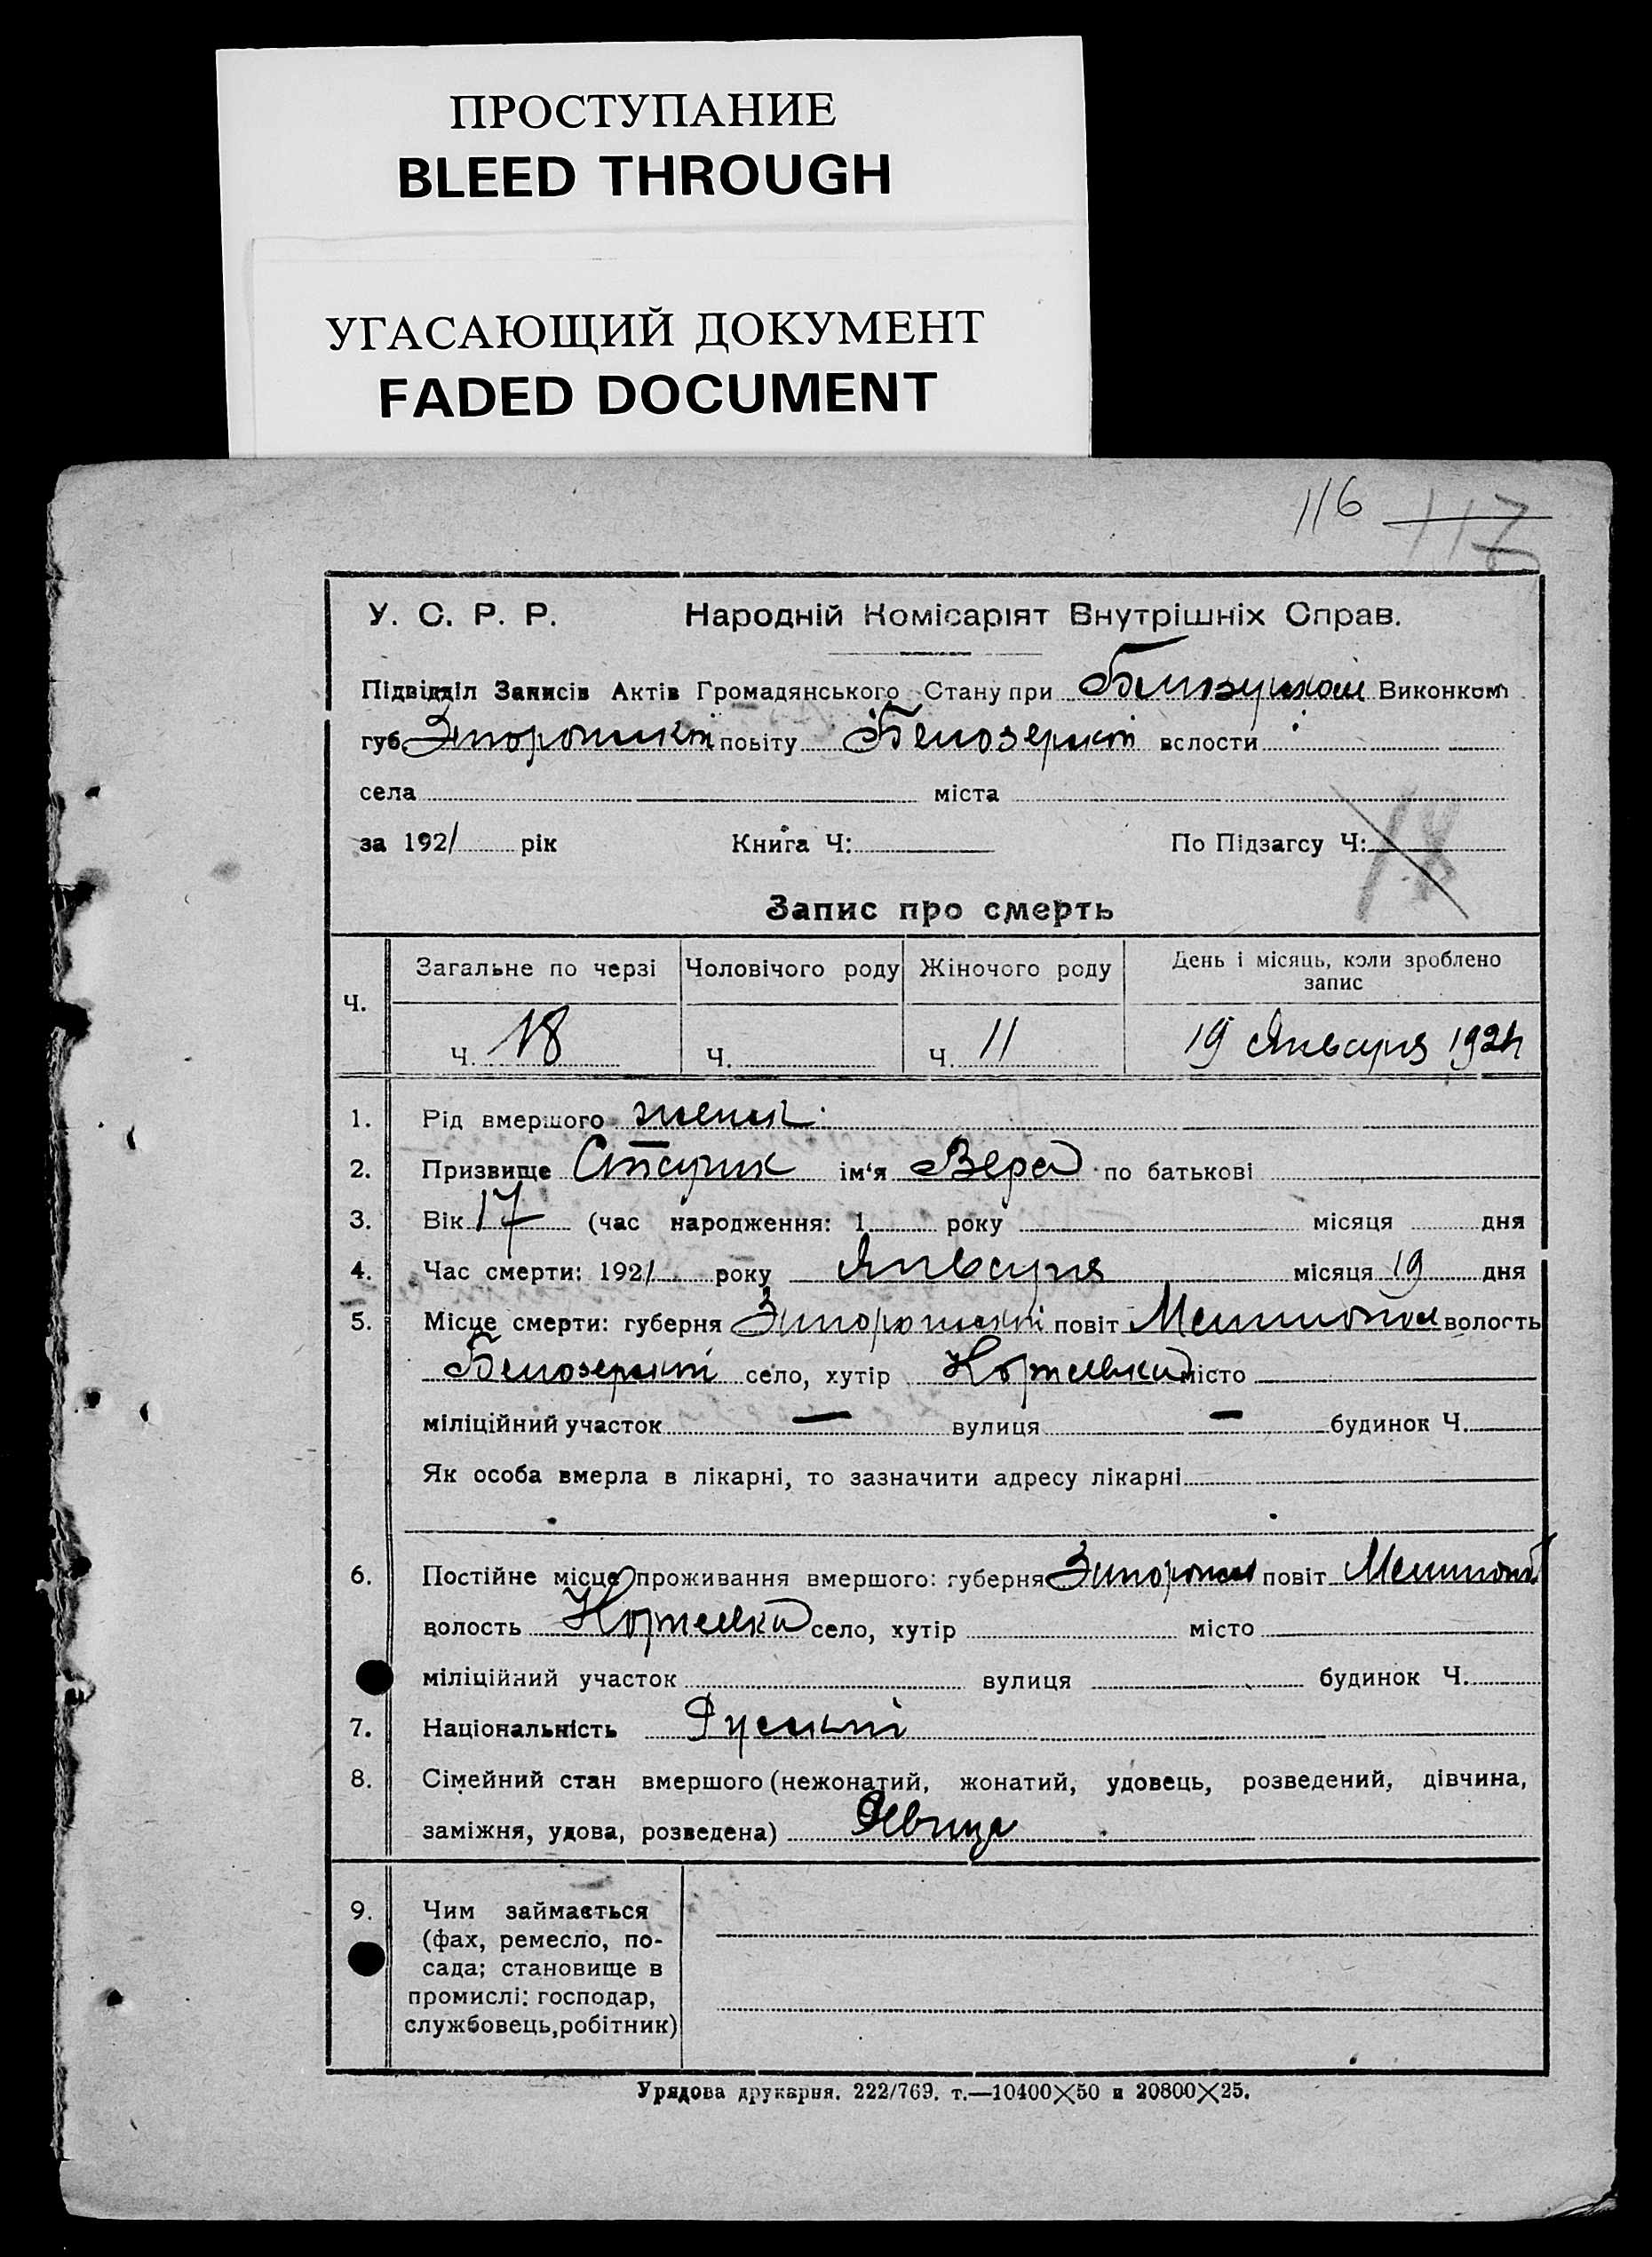 ПРОСТУПАНИЕ
BLEED THROUGH
УГАСАЮЩИЙ ДОКУМЕНТ
FADED DOCUMENT
116 117
У. С. Р. Р. Народній Комісаріят Внутрішніх Справ.
Підвідділ Записів Актів Громадянського Стану при Виконком
губ. повіту Белозерской волости
села міста
за 1921 рік Книга Ч: По Підзагсу Ч: 18
Запис про смерть
Ч. Загальне по черзі Чоловічого роду Жіночого роду День і місяць, коли зроблено
запис
Ч. 18 Ч. Ч. 11 19 Января 1921
1. Рід вмершого женск.
2. Призвище Старик ім'я Вера по батькові
3. Вік 17 (час народження: 1 року місяця дня
4. Час смерти: 1921 року Января місяця 19 дня
5. Місце смерти: губерня повіт волость
Белозерской село, хутір місто
міліційний участок — вулиця — будинок Ч.
Як особа вмерла в лікарні, то зазначити адресу лікарні
6. Постійне місце проживання вмершого: губерня повіт
волость село, хутір місто
міліційний участок вулиця будинок Ч.
7. Національність Руский
8. Сімейний стан вмершого (нежонатий, жонатий, удовець, розведений, дівчина,
заміжня, удова, розведена) Девица
9. Чим займається
(фах, ремесло, по-
сада; становище в
промислі: господар,
службовець, робітник)
Урядова друкарня. 222/769. т.—10400×50 и 20800×25.